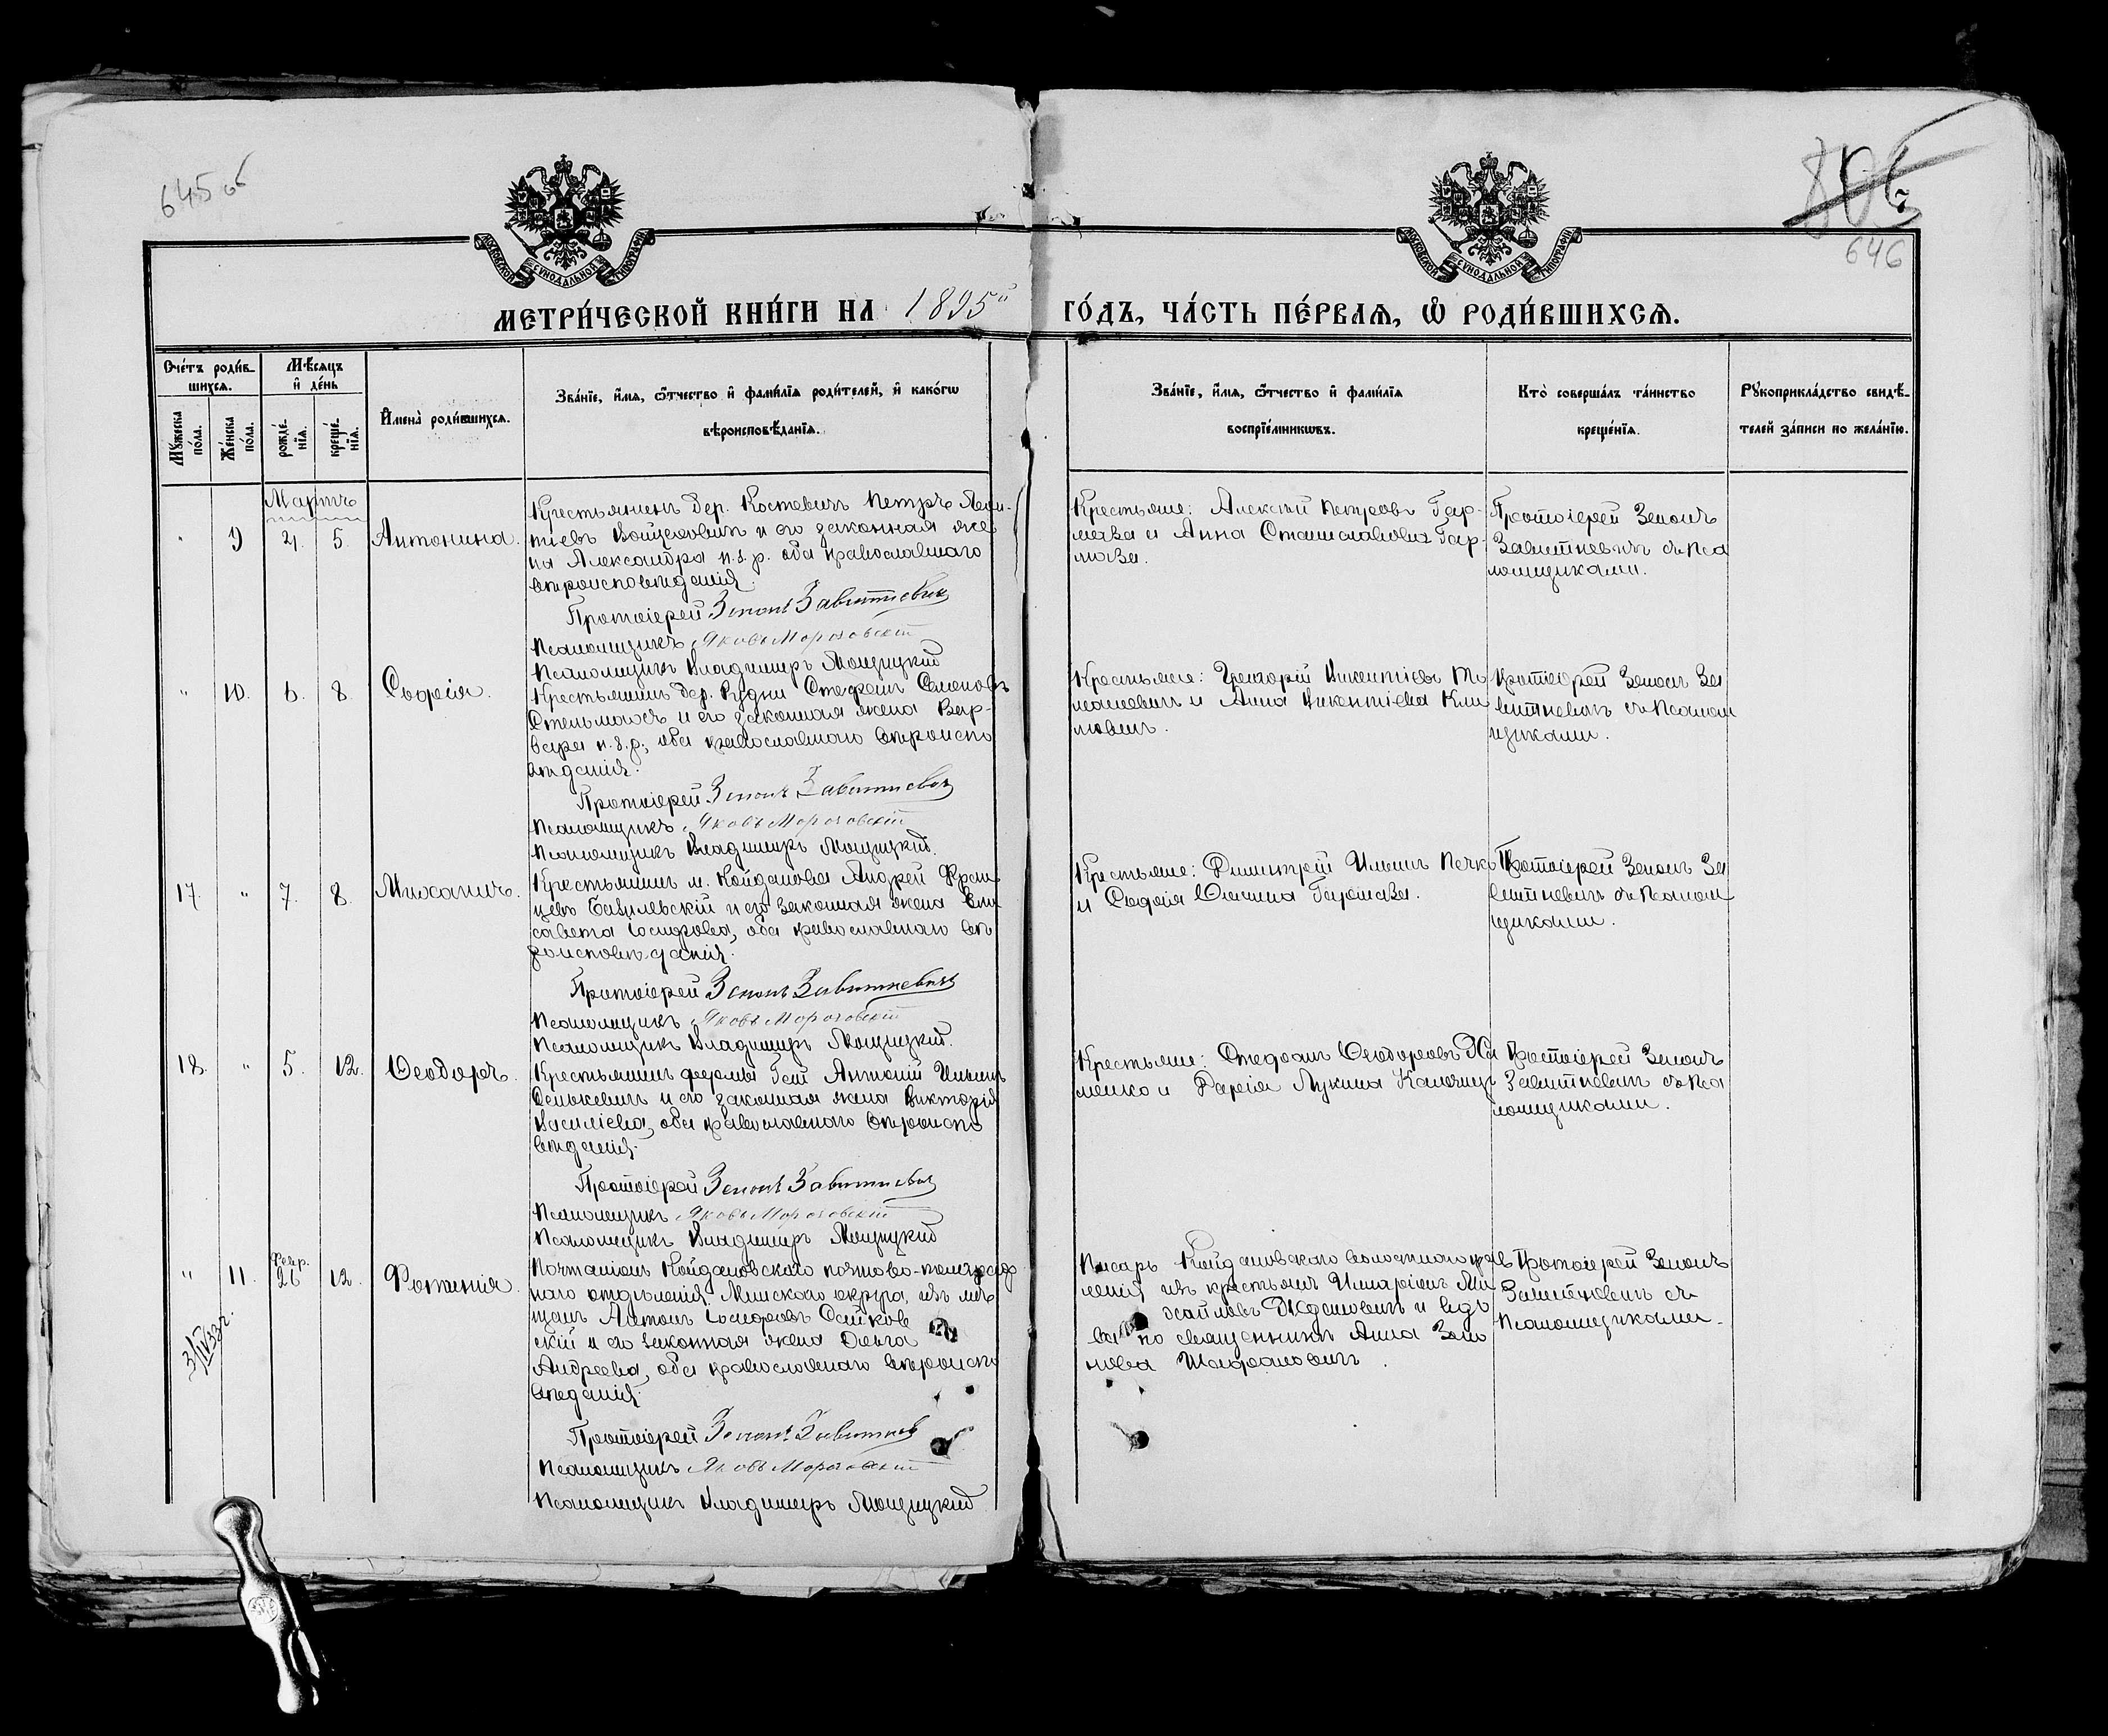 645 об
806
646
МОСКОВСКОЙ СѴНОДАЛЬНОЙ ТИПОГРАФІИ
МОСКОВСКОЙ СѴНОДАЛЬНОЙ ТИПОГРАФІИ
МЕТРИ́ЧЕСКОЙ КНИ́ГИ НА 1895й ГО́ДЪ, ЧА́СТЬ ПЕ́РВАѦ, Ѡ҆ РОДИ́ВШИХСѦ.
Счётъ роди́в-
шихсѧ.
Мѣ́сѧцъ
и҆ де́нь
Мꙋ́жеска
по́ла.
Же́нска
по́ла.
рожде́-
нїѧ.
креще́-
нїѧ.
И҆мена̀ роди́вшихсѧ.
Зва́нїе, и҆́мѧ, ѻ҆́тчество и҆ фами́лїѧ роди́телей, и҆ како́гѡ
вѣроисповѣ́данїѧ.
Зва́нїе, и҆́мѧ, ѻ҆́тчество и҆ фами́лїѧ
воспрїе́мникѡвъ.
Кто̀ соверша́лъ та́инство
креще́нїѧ.
Рꙋкоприкла́дство свидѣ́-
телей за́писи по жела́нїю.
Мартъ
9 4. 5. Антонина.
Крестьянинъ дер. Костевичъ Петръ
и его законная же
на Александра п.з.р. оба православнаго
вѣроисповѣданія.
Протоіерей Зенонъ Завитневичъ
Псаломщикъ Яковъ Морозовскій
Псаломщикъ Владимиръ Мощицкій
Крестьяне: Алексѣй Петровъ Гар-
маза и Анна Станиславова Гар-
маза.
Протоіерей Зенонъ
Завитневичъ съ пса
ломщиками.
" 10. 6. 8. Софія.
Крестьянинъ дер. Рудни Стефанъ Семеновъ
Стельмахъ и его законная жена Вар-
вара п.з.р., оба православнаго вѣроиспо
вѣданія.
Протоіерей Зенонъ Завитневичъ
Псаломщикъ Яковъ Морозовскій
Псаломщикъ Владимиръ Мощицкій.
Крестьяне: Григорій Викентіевъ
и Анна Викентіева Кли
мовичъ.
Протоіерей Зенонъ За
витневичъ съ псалом
щиками.
17. " 7. 8. Михаилъ.
Крестьянинъ м. Койданова Андрей Фран
цевъ и его законная жена Ели
савета Іосифова, оба православнаго вѣ
роисповѣданія.
Протоіерей Зенонъ Завитневичъ
Псаломщикъ Яковъ Морозовскій
Псаломщикъ Владимиръ Мощицкій.
Крестьяне: Димитрій Ильинъ
и Софія
Протоіерей Зенонъ За
витневичъ съ псалом
щиками.
18. " 5. 12. Ѳеодоръ.
Крестьянинъ фермы Антоній Ильинъ
Сенькевичъ и его законная жена Викторія
Василіева, оба православнаго вѣроиспо
вѣданія.
Протоіерей Зенонъ Завитневичъ
Псаломщикъ Яковъ Морозовскій
Псаломщикъ Владимиръ Мощицкій
Крестьяне: Стефанъ Ѳеодоровъ
и Марія Лукина
Протоіерей Зенонъ
Завитневичъ съ пса
ломщиками.
" 11. Февр. 26 12. Фотинія.
3/IV 33 г.
Почталіонъ Койдановскаго почтово-телеграф
наго отдѣленія Минскаго округа, изъ мѣ
щанъ Антонъ Іосифовъ
и его законная жена Ольга
Андреева, оба православнаго вѣроиспо
вѣданія.
Протоіерей Зенонъ Завитнев
Псаломщикъ Яковъ Морозовскій
Псаломщикъ Владимиръ Мощицкій
Писарь Койдановскаго волостного прав
ленія, изъ крестьянъ Иларіонъ Ми
хайловъ Ждановичъ и вдо
ва по священникѣ Анна Зено
нова
Протоіерей Зенонъ
Завитневичъ съ
псаломщиками.